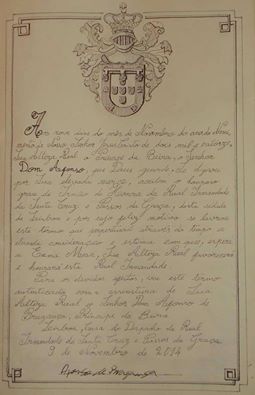 Aos nove dias do mês de Novembro do ano de Nosso
Senhor Jesus Cristo de dois mil e catorze,
Sua Alteza Real o Príncipe da Beira, o Senhor
Dom Afonso, que Deus guarde, se dignou
por sua elevada mercê, aceitar o honroso
grau de Irmão de Honra da Real Irmandade
de Santa Cruz e Passos da Graça, desta cidade
de Lisboa e por cujo feliz motivo se lavrou
este termo que perpetuará através do tempo a
elevada consideração e estima com que,
a Exma Mesa, Sua Alteza Real
honrará esta Real Irmandade
Para os devidos efeitos, vai este termo
autenticado com a assinatura de Sua
Alteza Real o Senhor Dom Afonso de
Bragança, Príncipe da Beira
Lisboa, Casa do Despacho da Real
Irmandade de Santa Cruz e Passos da Graça
9 de Novembro de 2014
Afonso de Bragança